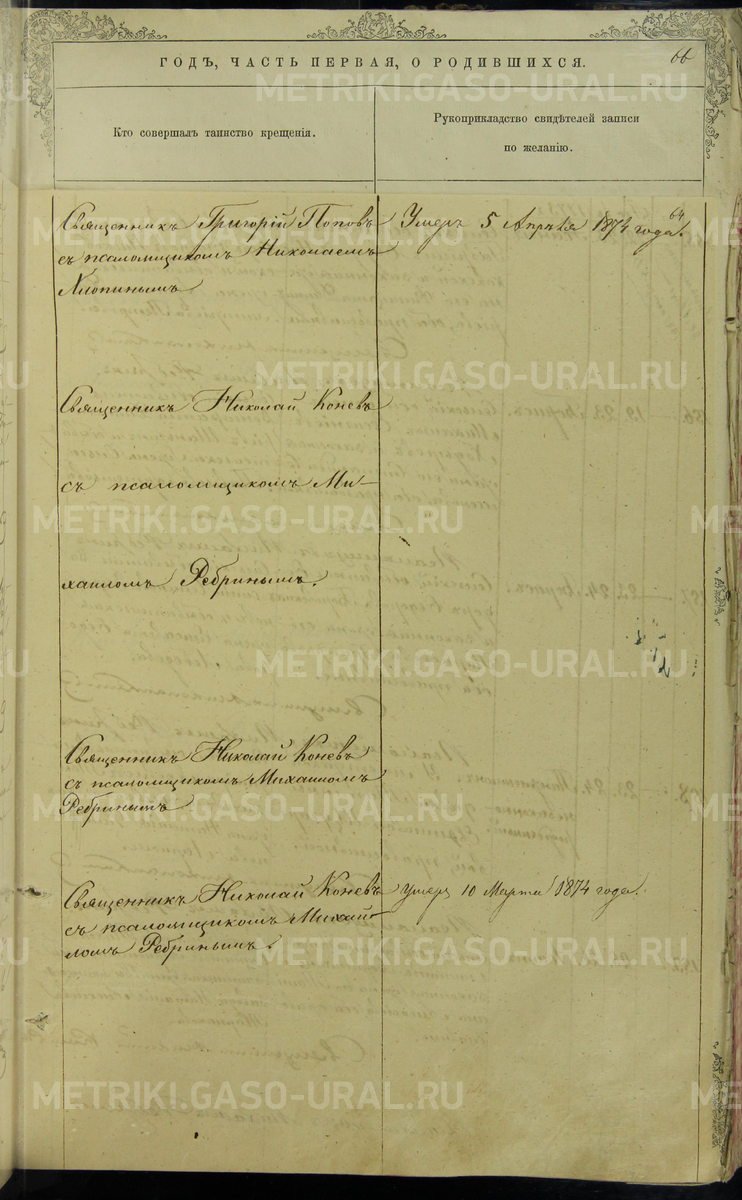 ГОДЪ, ЧАСТЬ ПЕРВАЯ, О РОДИВШИХСЯ.
66
Кто совершалъ таинство крещенія.
Рукоприкладство свидѣтелей записи
по желанію.
64
Священникъ Григорій Поповъ
съ псаломщикомъ Николаемъ
Хлопинымъ
Умеръ 5 Апрѣля 1874 года.
Священникъ Николай Коневъ
съ псаломщикомъ Ми-
хаиломъ Ребринымъ.
Священникъ Николай Коневъ
съ псаломщикомъ Михаиломъ
Ребринымъ
Священникъ Николай Коневъ
съ псаломщикомъ Михаи-
ломъ Ребринымъ.
Умеръ 10 Марта 1874 года.
METRIKI.GASO-URAL.RU